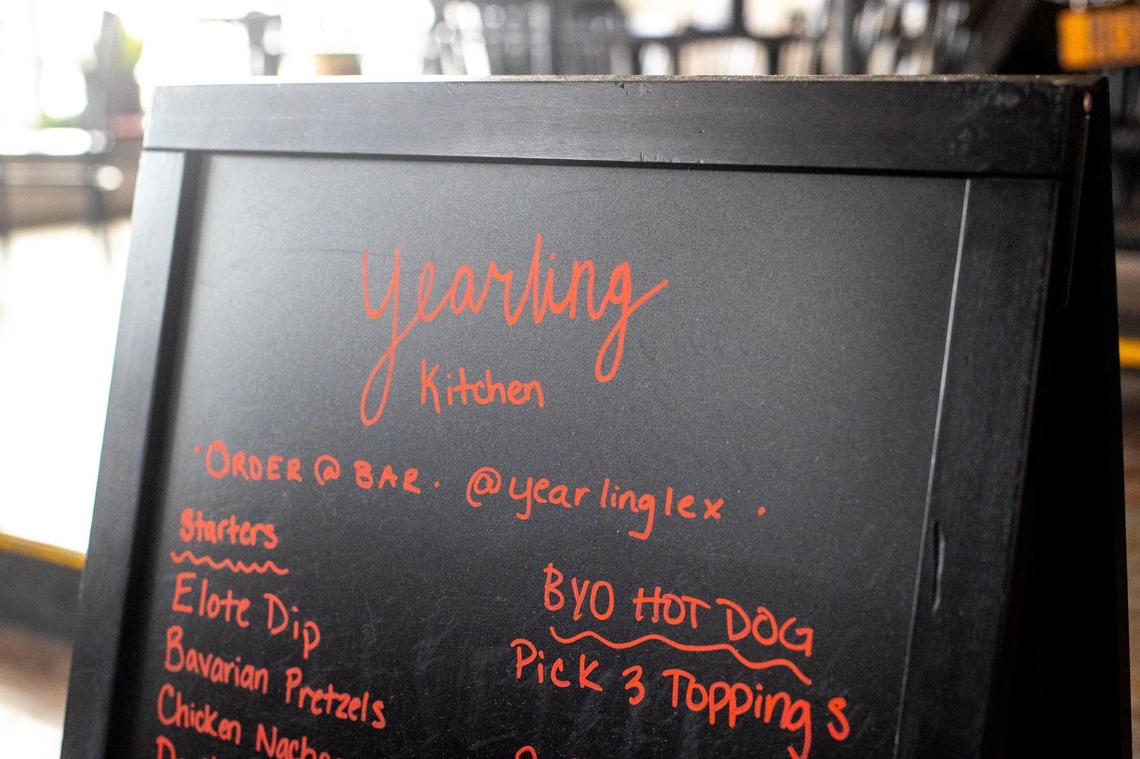 Yearling
Kitchen
·ORDER @ BAR· @yearlinglex ·
Starters
Elote Dip
Bavarian Pretzels
Chicken Nachos
BYO HOT DOG
Pick 3 Toppings